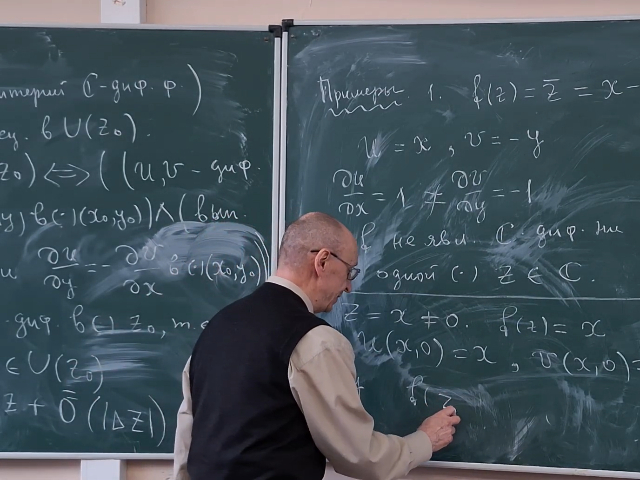 итерий ℂ-диф. ф.)
су. в U(z₀).
z₀) ⟺ ((u,v - диф.
y) в (·)(x₀,y₀)) ∧ (вып.
∂u/∂y = -∂v/∂x в (·)(x₀,y₀)
диф. в (·) z₀, т.е
∈ U(z₀)
z + ō(|Δz|)
Примеры. 1. f(z) = z̄ = x -
u = x, v = -y
∂u/∂x = 1 ≠ ∂v/∂y = -1
не явл. ℂ-диф. ни
одной (·) z ∈ ℂ.
z = x + 0. f(z) = x
u(x,0) = x, v(x,0) =
f(z